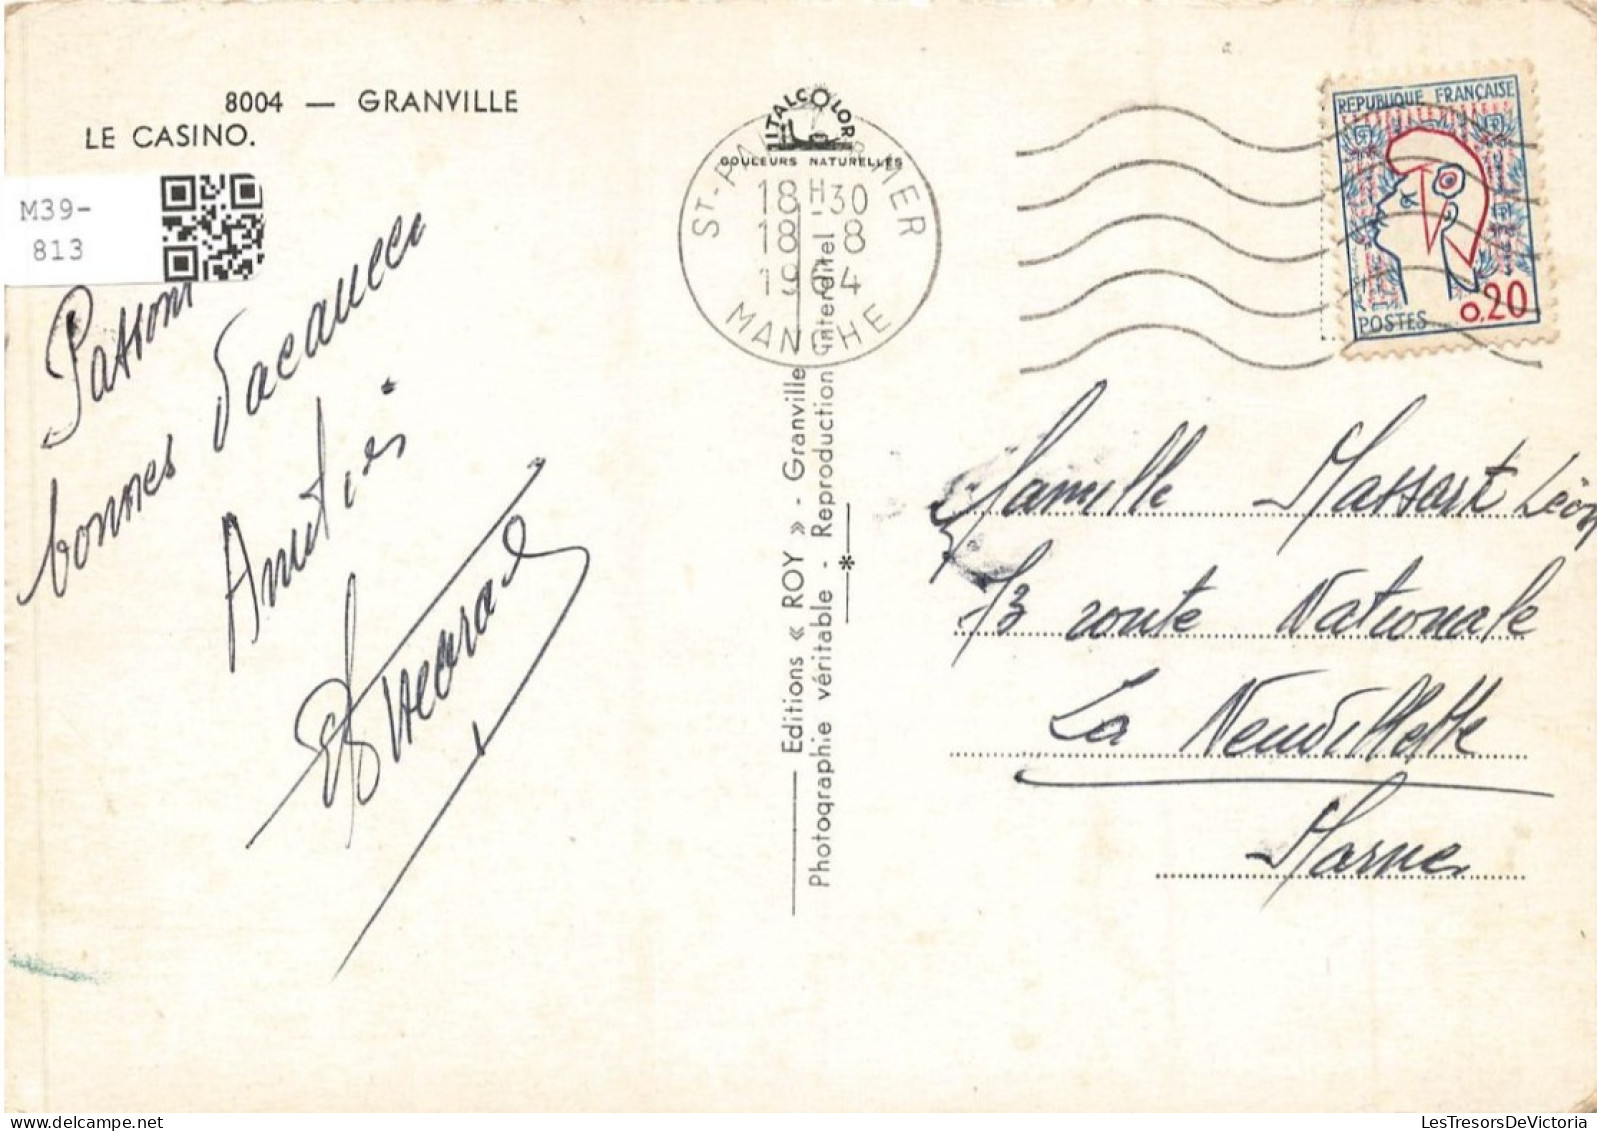 8004 — GRANVILLE
LE CASINO.
M39-
813
Passons
bonnes Vacances
Amitiés
ITALCOLOR
COULEURS NATURELLES
ST-PAIR-SUR-MER
18H30
18 - 8
1964
MANCHE
Editions « ROY » - Granville
Photographie véritable - Reproduction interdite
*
REPUBLIQUE FRANÇAISE
POSTES 0,20
Famille Massart Léon
73 route Nationale
La Neuvillette
Marne
LesTresorsDeVictoria